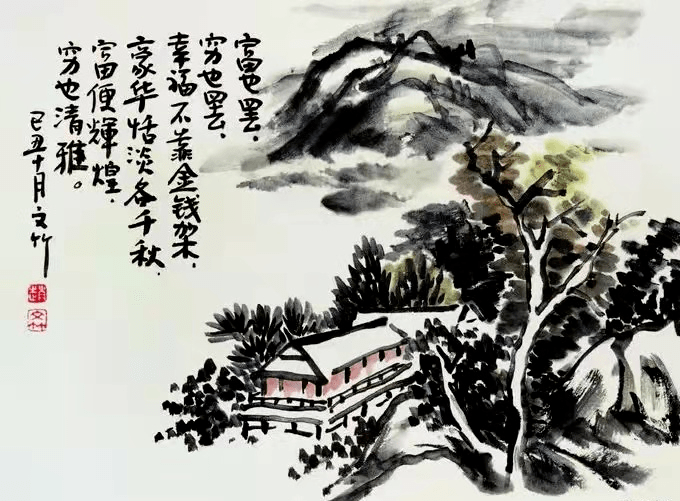 富也罢、
穷也罢、
幸福不靠金钱架、
豪华恬淡各千秋、
富便輝煌、
穷也清雅。
己丑十月文竹
文竹